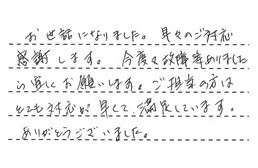 お世話になりました。早々のご対応
感謝します。今度々故障等ありました
ら宜しくお願いします。ご担当の方は
とても対応が早くて、満足しています。
ありがとうございました。